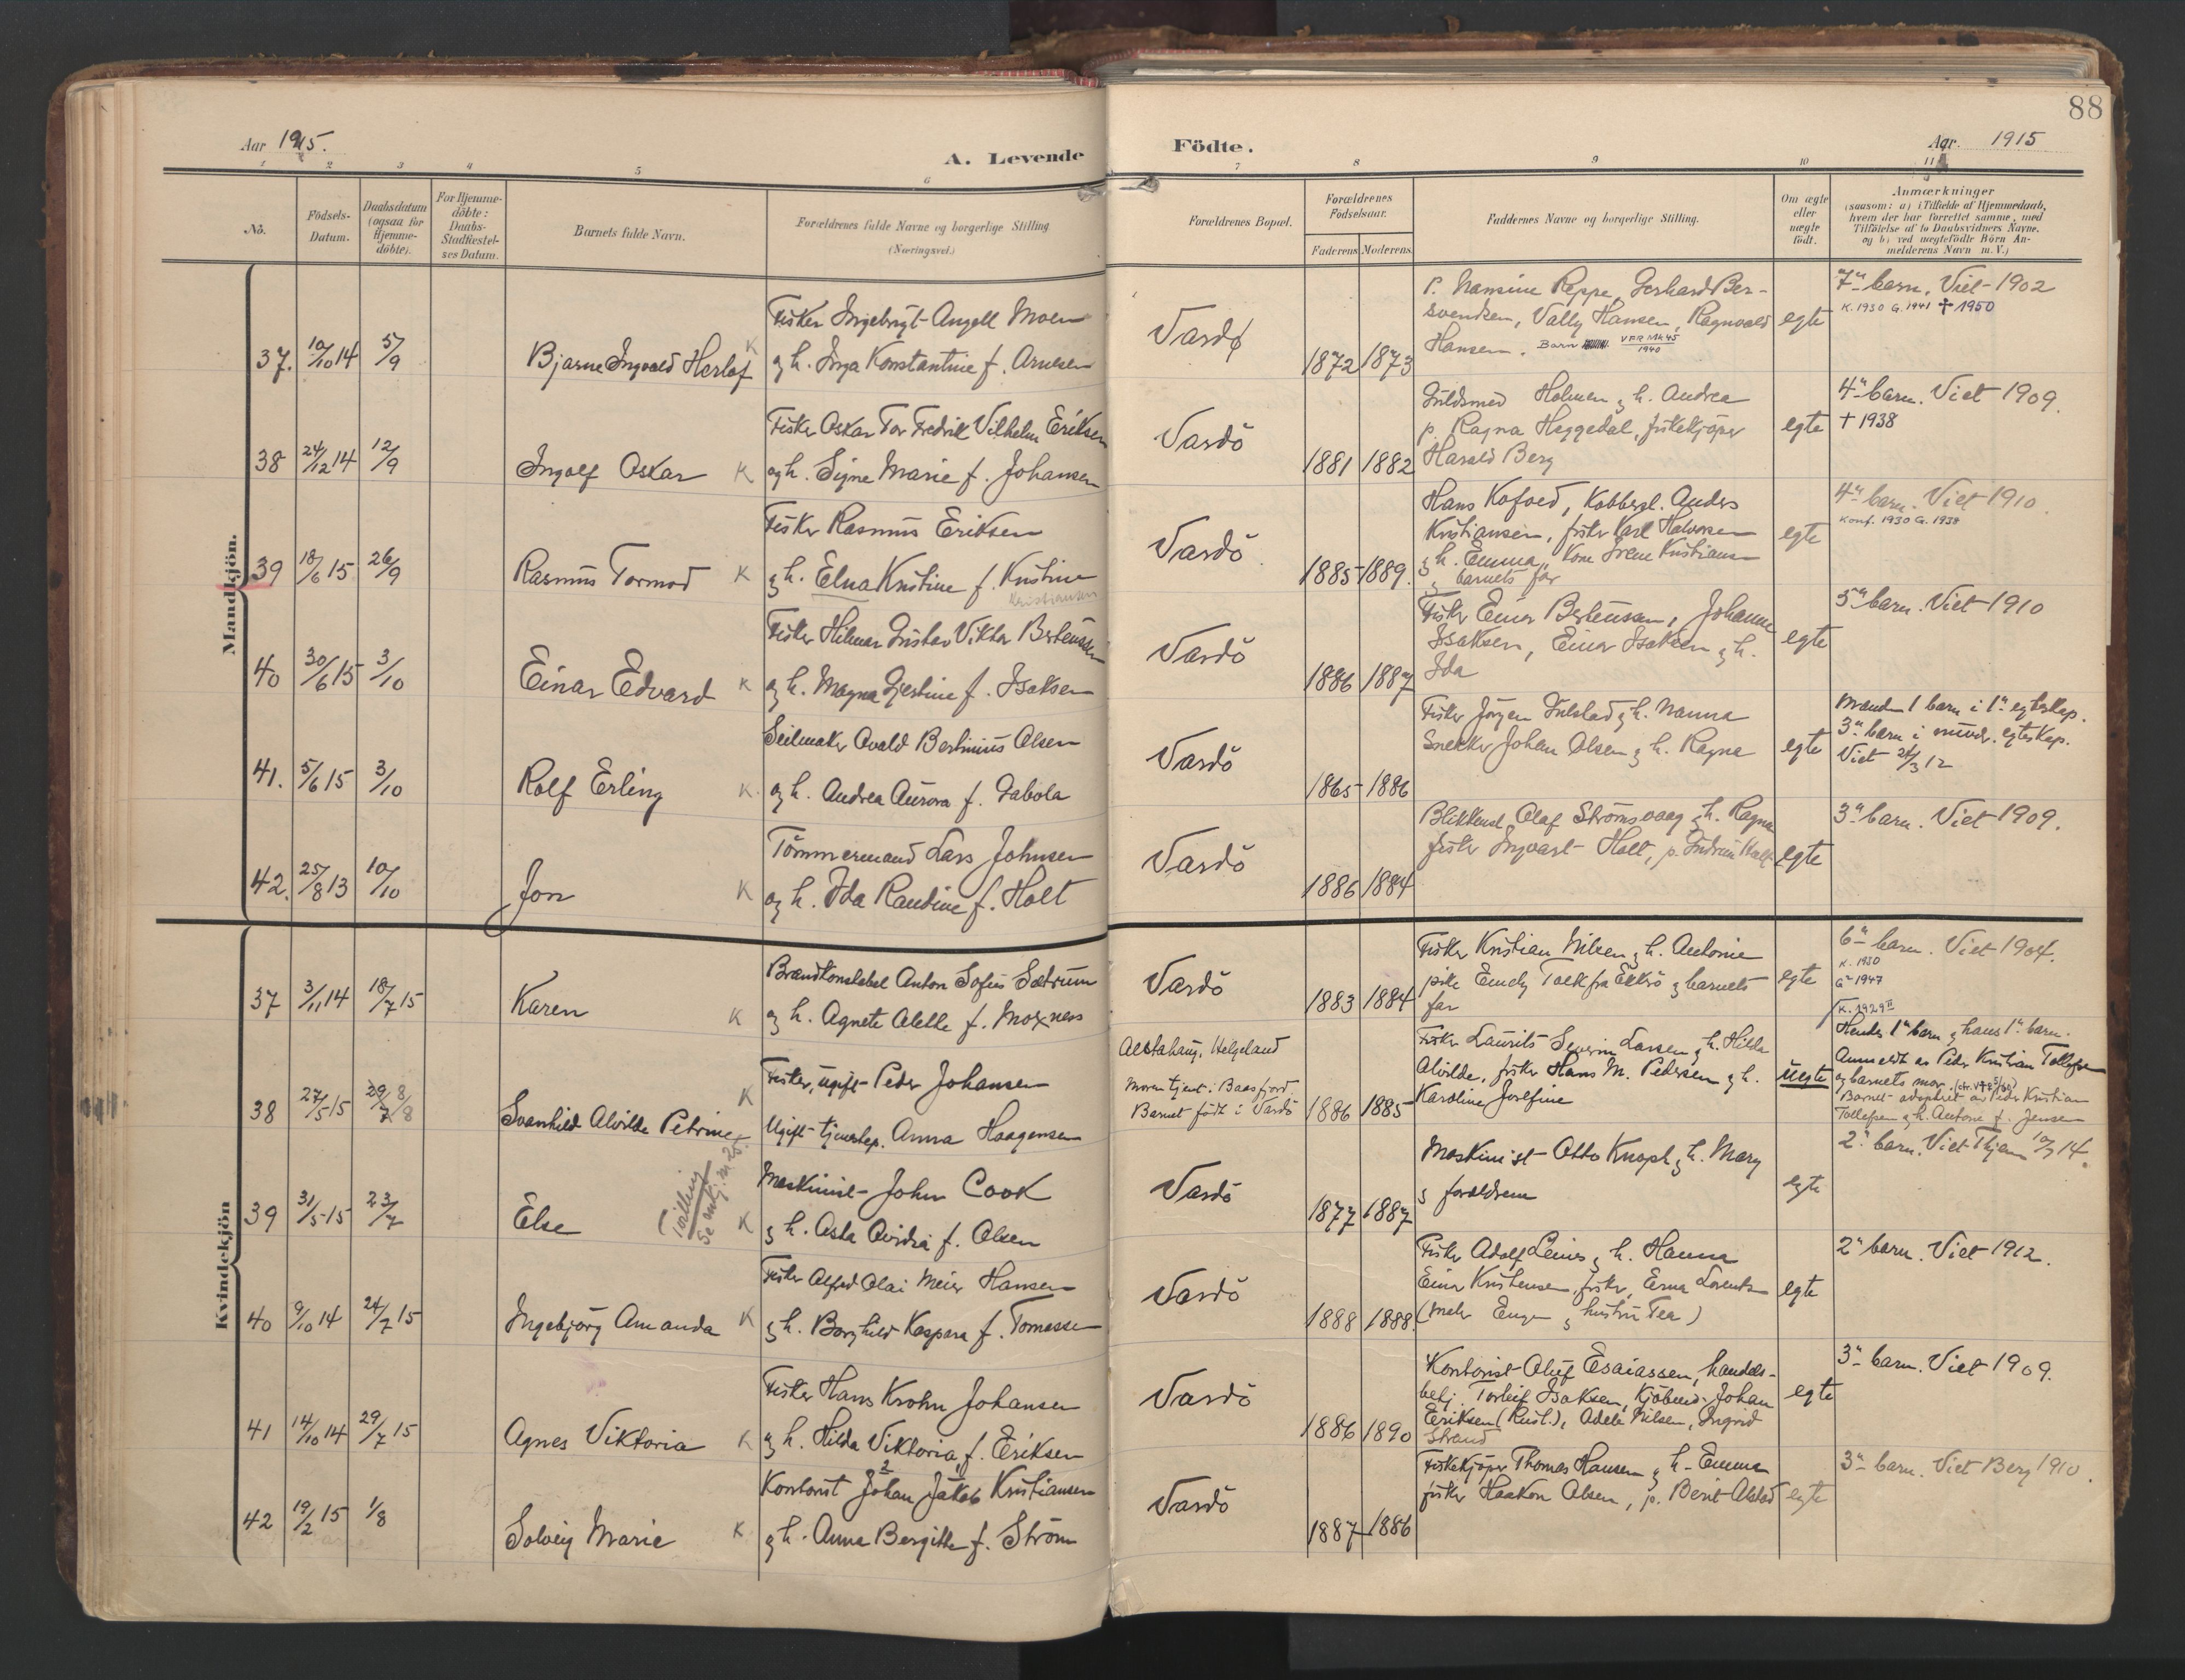 88
Aar 1915.
A. Levende
Födte.
Aar. 1915
1 2 3 4 5 6 7 8 9 10 11
No.
Födsels-
Datum.
Daabsdatum
(ogsaa for
Hjemme-
döbte).
For Hjemme-
döbte:
Daabs-
Stadfæstel-
ses Datum.
Barnets fulde Navn.
Forældrenes fulde Navne og borgerlige Stilling
(Næringsvei.)
Forældrenes Bopæl.
Forældrenes
Födselsaar.
Faderens Moderens
Faddernes Navne og borgerlige Stilling.
Om ægte
eller
uægte
födt.
Anmærkninger
(saasom: a) i Tilfælde af Hjemmedaab,
hvem der har forrettet samme, med
Tilföielse af to Daabsvidners Navne,
og b) ved uægtefödte Börn An-
melderens Navn m. V.)
Mandkjön.
37. 10/10 14 5/9
Bjarne Ingvald Herlof K
Fisker Ingebrigt Angell Moen
og h. Inga Konstantine f. Arnesen
Vardø
1872 1873
p. Nansine Reppe, Gerhard Ber-
svendsen, Vally Hansen, Ragnvald
Hansen. Barn VFR Mk 45
1940
egte
7de barn. Viet 1902
K. 1930 G. 1941 ✝ 1950
38 24/12 14 12/9
Ingolf Oskar K
Fisker Oskar Tor Fredrik Vilhelm Eriksen
og h. Signe Marie f. Johansen
Vardö
1881 1882
Guldsmed Holmen og h. Andrea
p. Ragna Heggedal, fiskekjøper
Harald Berg
egte
4de barn. Viet 1909.
✝ 1938
39 18/6 15 26/9
Rasmus Tormod K
Fisker Rasmus Eriksen
og h. Elna Kristine f. Kristine
Kristiansen
Vardö
1885 1889.
Hans Kofoed, Kobbersl. Anders
Kristiansen, fisker Karl Halvorsen
og h. Emma, Kone Irene Kristiansen
og barnets far
egte
4de barn. Viet 1910.
Konf. 1930 G. 1938
40 30/6 15 3/10
Einar Edvard K
Fisker Hilmar Gustav Viktor Berteussen
og h. Magna Gjertine f. Isaksen
Vardö
1886 1887
Fisker Einar Berteussen, Johanne
Isaksen, Einar Isaksen og h.
Ida
egte
5te barn. Viet 1910
41. 5/6 15 3/10
Rolf Erling K
Seilmaker Evald Bertinius Olsen
og h. Andrea Aurora f. Gabola
Vardö
1865 1886
Fisker Jörgen Gulstad og h. Nanna
Snekker Johan Olsen og h. Ragna
egte
Manden 1 barn i 1ste egteskap.
3de barn i nuvær. egteskap.
Viet 24/3 12
42. 25/8 13 10/10
Jon K
Tömmermand Lars Johnsen
og h. Ida Randine f. Holt
Vardö
1886 1884
Blikkensl. Olaf Strömsvaag og h. Ragna
fisker Ingvart Holt, p. Gudrun Holt
egte
3de barn. Viet 1909.
Kvindekjön
37 3/11 14 18/7 15
Karen K
Brandkonstabel Anton Sofus Sætrum
og h. Agnete Alette f. Moxness
Vardö
1883 1884
Fisker Kristian Nilsen og h. Antonie
pike Emely Falk fra Ekkerö og barnets
far
egte
6te barn. Viet 1904.
K. 1930
G 1947
38 27/5 15 29/7 8/8
Svanhild Alvilde Petrine K
Fisker, ugift Peder Johansen
Ugift tjenerskap. Anna Haagensen
Alstahaug, Helgeland
Moren tjent i Baasfjord
Barnet født i Vardö
1886 1885
Fisker Laurits Severin Larsen og h. Hilda
Alvilde, fisker Hans M. Pedersen og h.
Karoline Josefine
uegte
K. 1929 II
Hendes 1ste barn og hans 1ste barn.
Anmeldt av Peder Kristian Tollefsen
og barnets mor.
Barnet adoptert av Peder Kristian
Tollefsen og h. Antone f. Jensen
39 31/5 15 23/7
Else K
Tvilling
Se mkj. nr. 25.
Maskinist John Cook
og h. Asta Ovidia f. Olsen
Vardö
1877 1887
Maskinist Otto Knoph og h. Mary
og forældrene
egte
2det barn. Viet Thjem 10/7 14.
40 9/10 14 24/7 15
Ingebjörg Amanda K
Fisker Alfred Olai Meier Hansen
og h. Borghild Kaspara f. Tomassen
Vardö
1888 1888.
Fisker Adolf Leines og h. Hanna
Einar Kristensen, fisker, Erna Lorentsen
(maler Eugen og hustru Tea)
egte
2det barn. Viet 1912.
41 14/10 14 29/7 15
Agnes Viktoria K
Fisker Hans Krohn Johansen
og h. Hilda Viktoria f. Eriksen
Vardö
1886 1890
Kontorist Oluf Esaiassen, handels-
betj. Torleif Isaksen, Kjöbmd. Johan
Eriksen (Rust.), Adele Nilsen, Ingrid
Strand
egte
3de barn. Viet 1909.
42 19/2 15 1/8
Solveig Marie K
Kontorist Johan Jakob Kristiansen
og h. Anna Bergitte f. Ström
Vardö
1887 1886
Fiskekjøper Thomas Hansen og h. Emma
fisker Haakon Olsen, p. Berit Alstad
egte
3de barn. Viet Berg 1910.